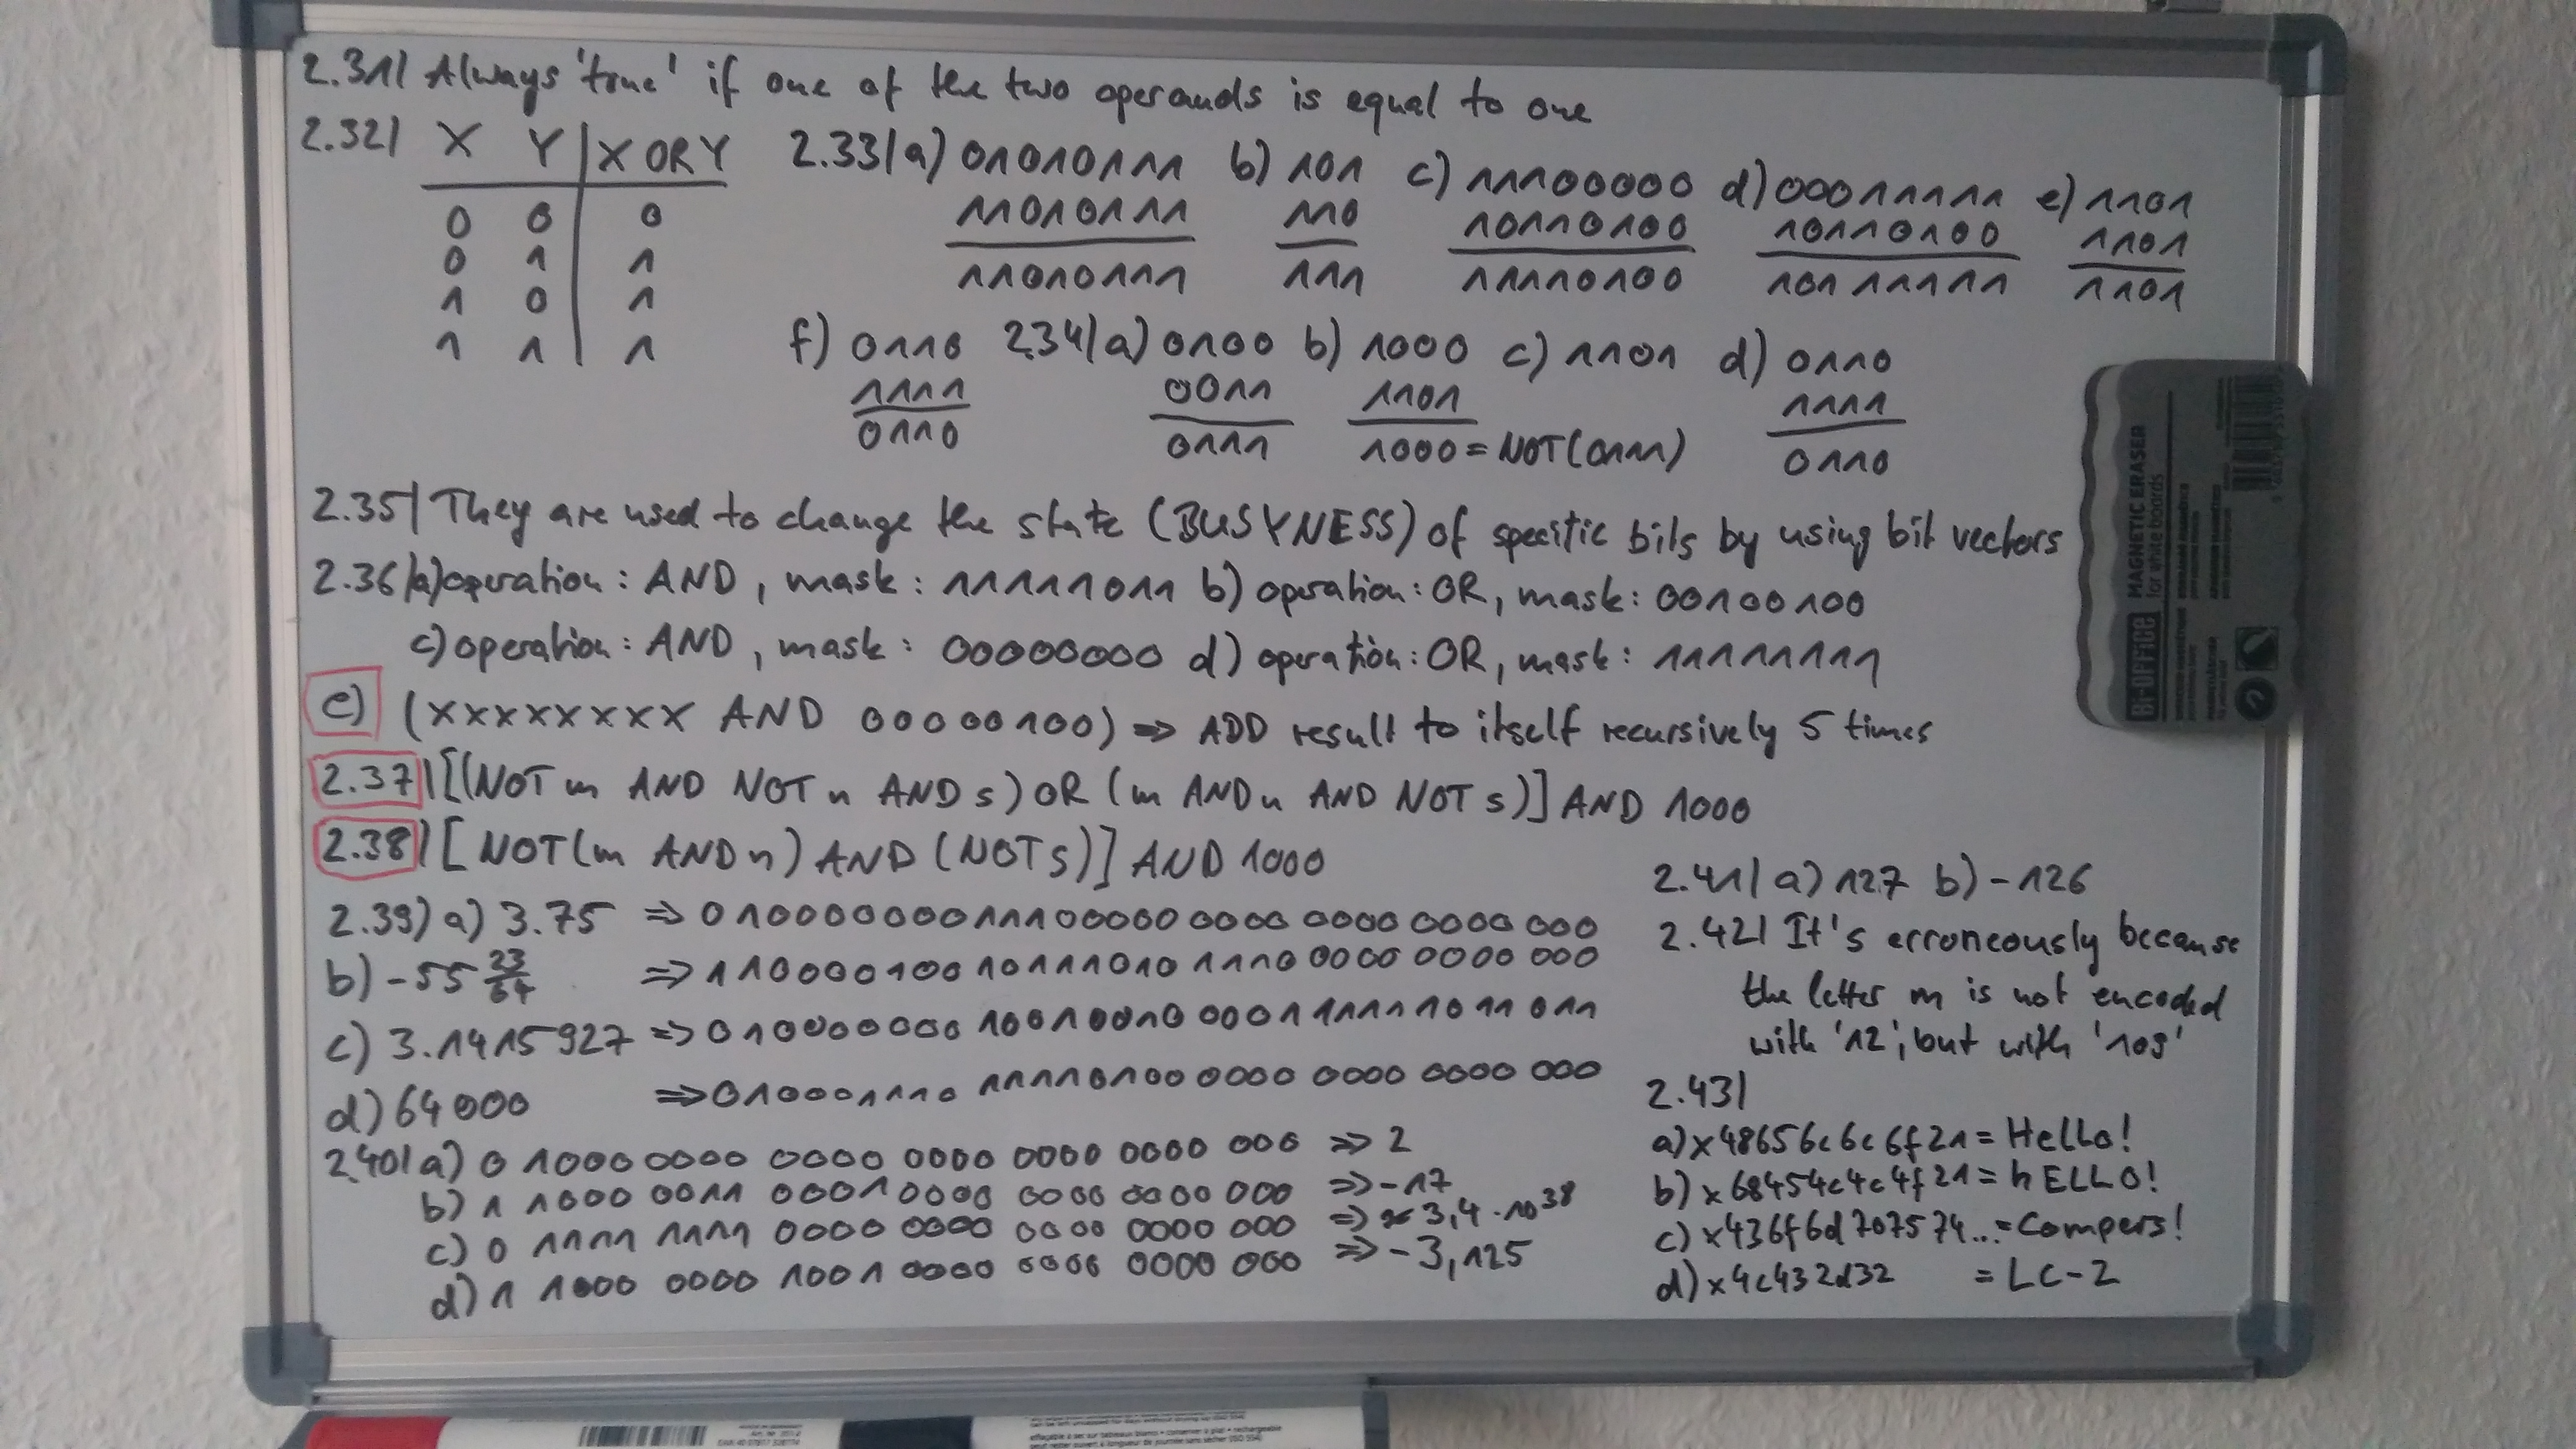 2.31| Always 'true' if one of the two operands is equal to one
2.32| X Y | X OR Y
0 0 0
0 1 1
1 0 1
1 1 1
2.33|a) 01010111 b) 101 c) 11100000 d) 00011111 e) 1101
11010111 110 10110100 10110100 1101
11010111 111 11110100 10111111 1101
f) 0110 2.34|a) 0100 b) 1000 c) 1101 d) 0110
1111 0011 1101 1111
0110 0111 1000 = NOT(0111) 0110
2.35| They are used to change the state (BUSYNESS) of specific bits by using bit vectors
2.36|a) operation: AND, mask: 11111011 b) operation: OR, mask: 00100100
c) operation: AND, mask: 00000000 d) operation: OR, mask: 11111111
e) (xxxxxxxx AND 00000100) => ADD result to itself recursively 5 times
2.37| [(NOT m AND NOT n AND s) OR (m AND n AND NOT s)] AND 1000
2.38| [NOT(m AND n) AND (NOT s)] AND 1000
2.39) a) 3.75 => 0 10000000 1110000 0000 0000 0000 0000
b) -55 23/64 => 1 10000100 10111010 1110 0000 0000 000
c) 3.1415927 => 0 10000000 10010010 0001 1111 1011 011
d) 64000 => 0 10001110 11110100 0000 0000 0000 000
2.40|a) 0 1000 0000 0000 0000 0000 0000 000 => 2
b) 1 1000 0011 0001 0000 0000 0000 000 => -17
c) 0 1111 1111 0000 0000 0000 0000 000 => ≈ 3,4 · 10^38
d) 1 1000 0000 1001 0000 0000 0000 000 => -3,125
2.41| a) 127 b) -126
2.42| It's erroneously because
the letter m is not encoded
with '12', but with '109'
2.43|
a) x48656c6c6f21 = Hello!
b) x68454c4c4f21 = hELLO!
c) x436f6d707574... = Compers!
d) x4c432d32 = LC-2
Bi-Office
MAGNETIC ERASER
for white boards